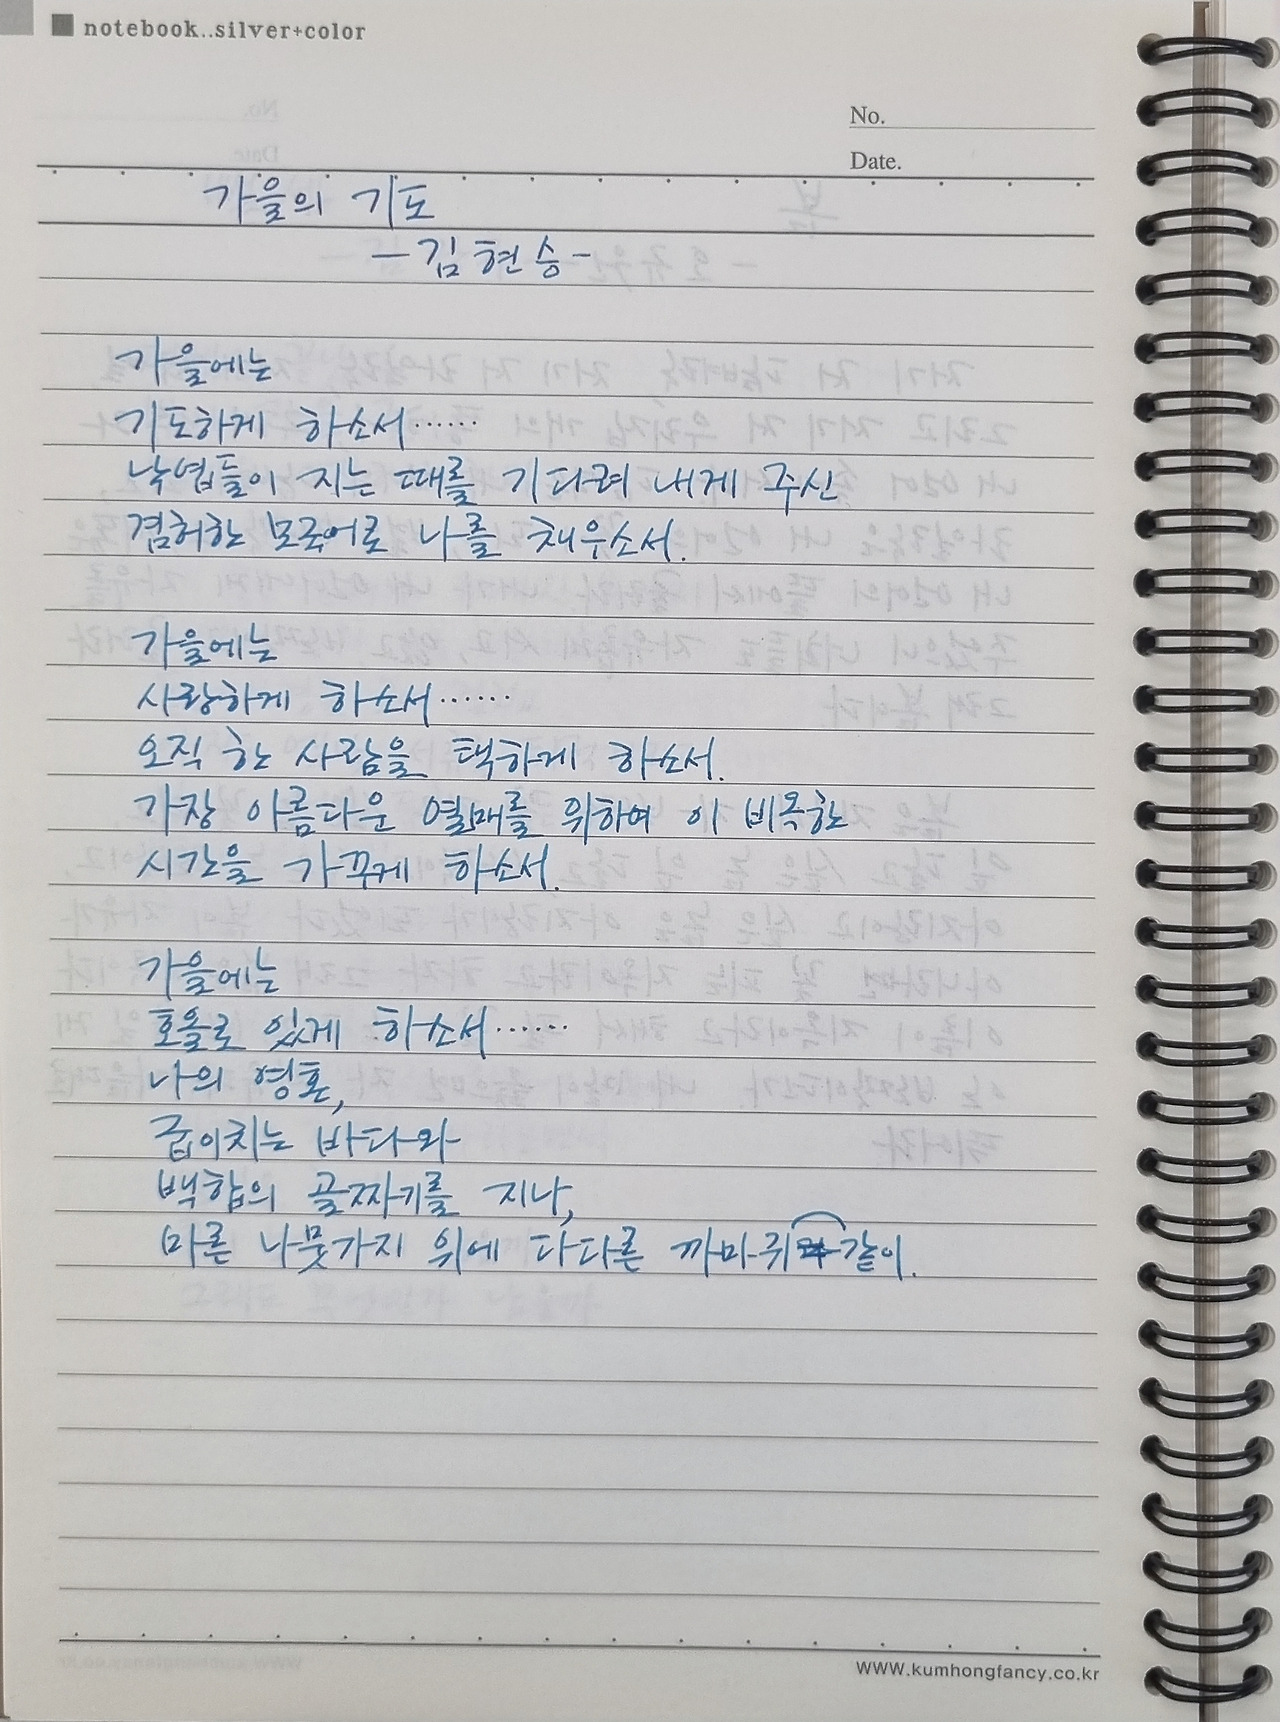 notebook..silver+color
No.
Date.
가을의 기도
-김현승-
가을에는
기도하게 하소서……
낙엽들이 지는 때를 기다려 내게 주신
겸허한 모국어로 나를 채우소서.
가을에는
사랑하게 하소서……
오직 한 사람을 택하게 하소서.
가장 아름다운 열매를 위하여 이 비옥한
시간을 가꾸게 하소서.
가을에는
호올로 있게 하소서……
나의 영혼,
굽이치는 바다와
백합의 골짜기를 지나,
마른 나뭇가지 위에 다다른 까마귀같이.
www.kumhongfancy.co.kr